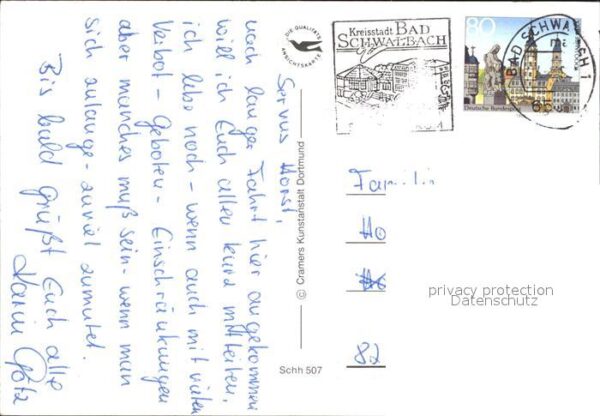 Servus Horst,
nach langer Fahrt hier angekommen
will ich Euch allen kurz mitteilen,
ich lebe noch - wenn auch mit vielen
Verbot - Geboten - Einschränkungen
aber manches muß sein - wenn man
sich zulange - zuviel zumutet.
Bis bald grüßt Euch alle
Karin Götz
DIE QUALITÄTS
ANSICHTSKARTE
© Cramers Kunstanstalt Dortmund
Schh 507
Kreisstadt BAD
SCHWALBACH
80
Deutsche Bundespost
BAD SCHWALBACH 1
Familie
Ho
82
privacy protection
Datenschutz